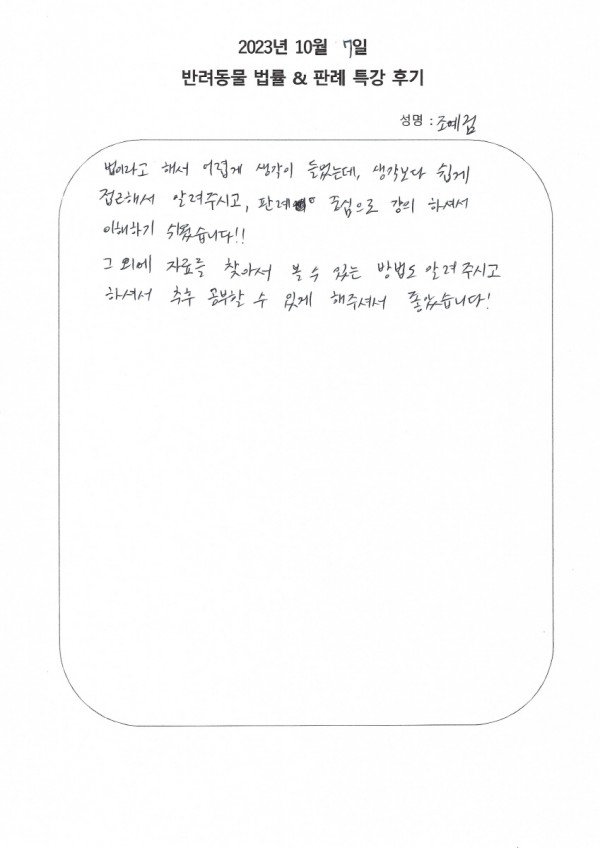 2023년 10월 7일
반려동물 법률 & 판례 특강 후기
성명 : 조예검
법이라고 해서 어렵게 생각이 들었는데, 생각보다 쉽게
접근해서 알려주시고, 판례 중심으로 강의 하셔서
이해하기 쉬웠습니다!!
그 외에 자료를 찾아서 볼 수 있는 방법도 알려 주시고
하셔서 추후 공부할 수 있게 해주셔서 좋았습니다!